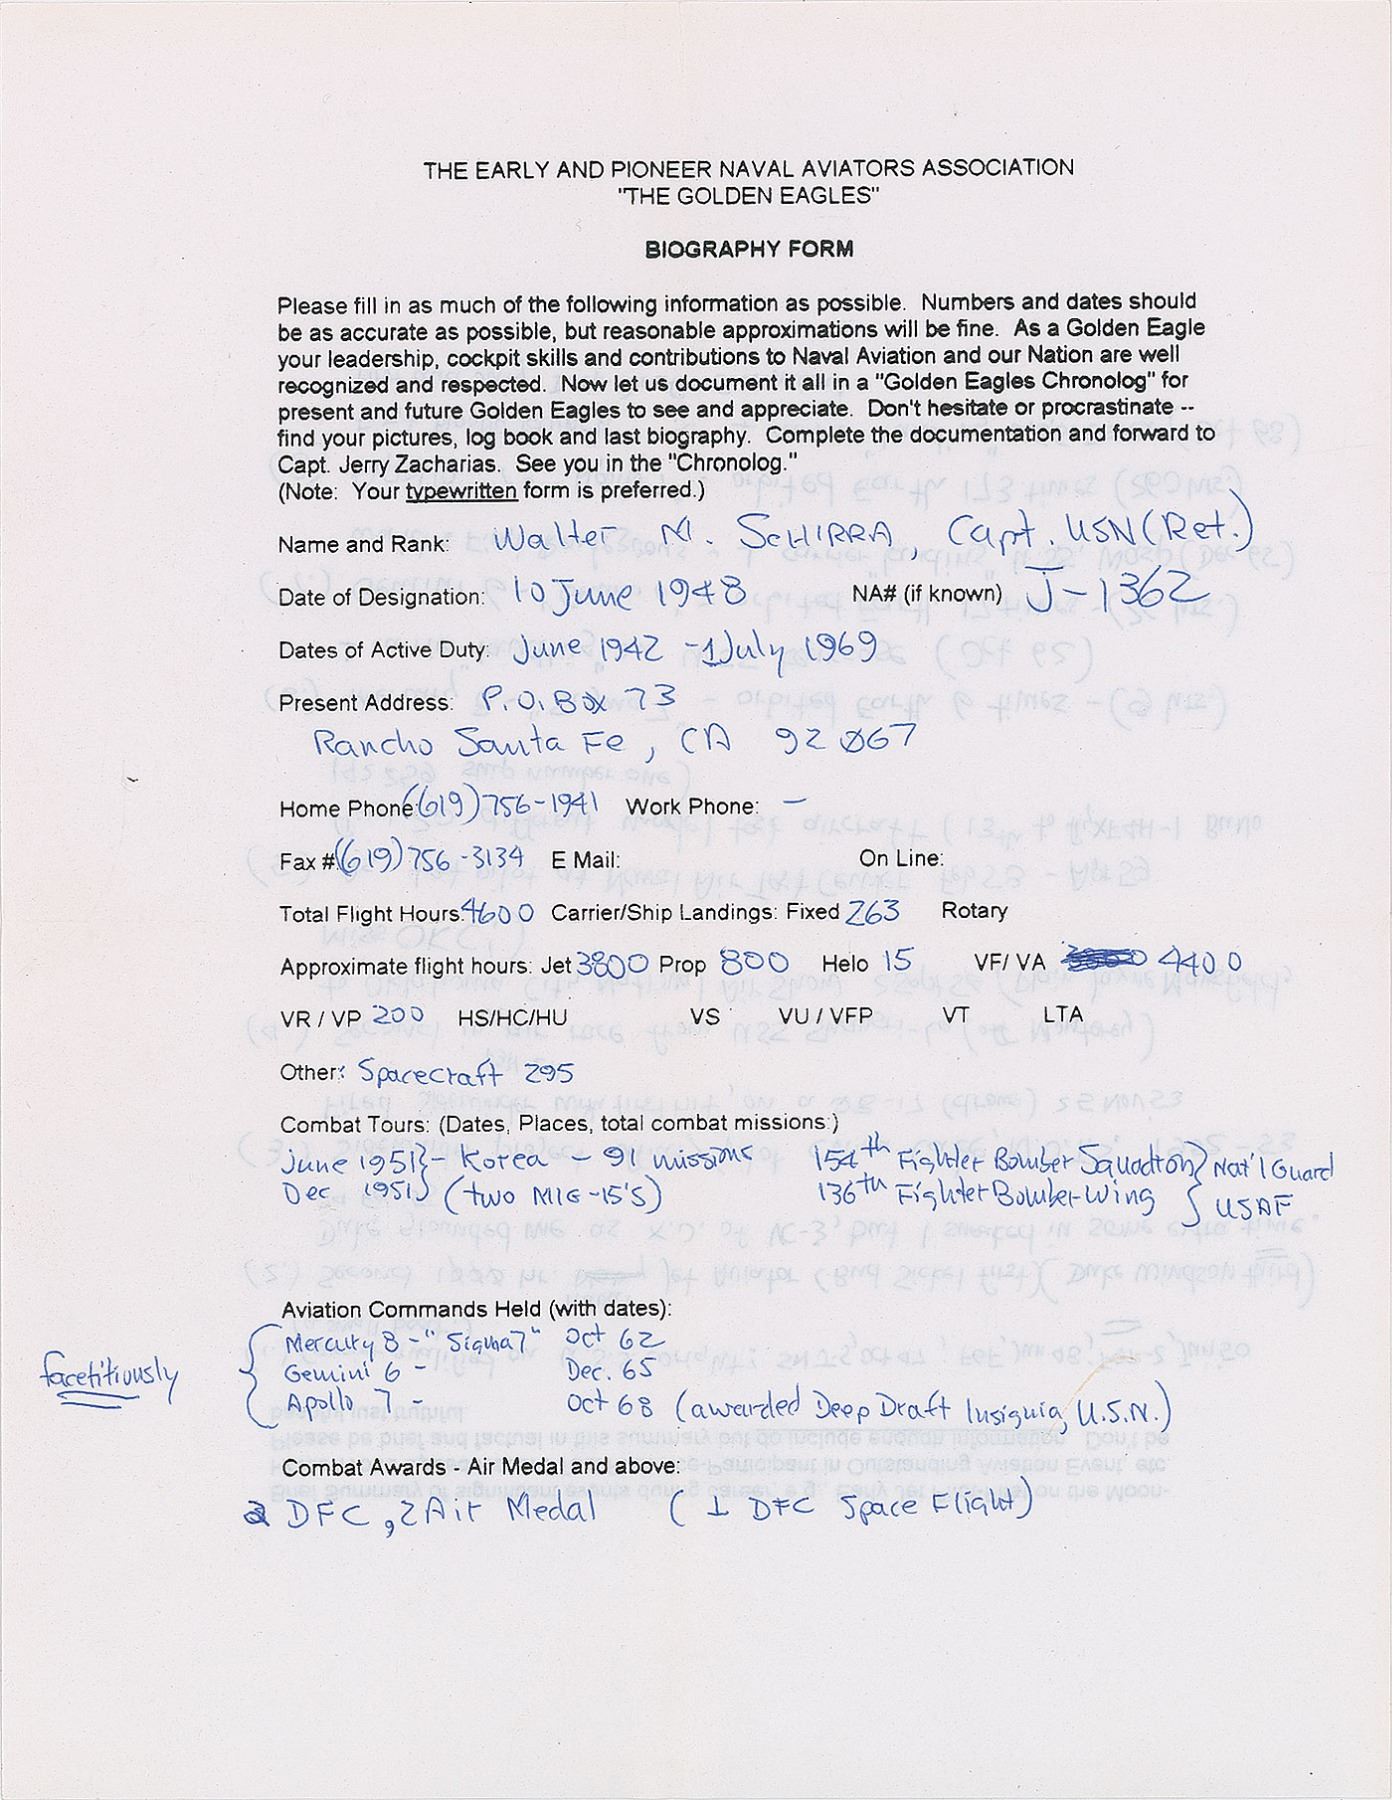 THE EARLY AND PIONEER NAVAL AVIATORS ASSOCIATION
"THE GOLDEN EAGLES"
BIOGRAPHY FORM
Please fill in as much of the following information as possible. Numbers and dates should
be as accurate as possible, but reasonable approximations will be fine. As a Golden Eagle
your leadership, cockpit skills and contributions to Naval Aviation and our Nation are well
recognized and respected. Now let us document it all in a "Golden Eagles Chronolog" for
present and future Golden Eagles to see and appreciate. Don't hesitate or procrastinate --
find your pictures, log book and last biography. Complete the documentation and forward to
Capt. Jerry Zacharias. See you in the "Chronolog."
(Note: Your typewritten form is preferred.)
Name and Rank: Walter M. SCHIRRA, Capt. USN (Ret.)
Date of Designation: 10 June 1948 NA# (if known) J-1362
Dates of Active Duty: June 1942 - 1 July 1969
Present Address: P.O. Box 73
Rancho Santa Fe, CA 92067
Home Phone: (619) 756-1941 Work Phone: -
Fax # (619) 756-3134 E Mail: On Line:
Total Flight Hours: 4600 Carrier/Ship Landings: Fixed 263 Rotary
Approximate flight hours: Jet 3800 Prop 800 Helo 15 VF/ VA 4400
VR / VP 200 HS/HC/HU VS VU / VFP VT LTA
Other: Spacecraft 295
Combat Tours: (Dates, Places, total combat missions:)
June 1951 } - Korea - 91 missions 154th Fighter Bomber Squadron } Nat'l Guard
Dec 1951 } (two MIG-15'S) 136th Fighter Bomber-Wing } USAF
Aviation Commands Held (with dates):
Mercury 8 - "Sigma 7" Oct 62
facetitiously { Gemini 6 - Dec. 65
Apollo 7 - Oct 68 (awarded Deep Draft Insignia, U.S.N.)
Combat Awards - Air Medal and above:
DFC, 2 Air Medal (1 DFC Space Flight)